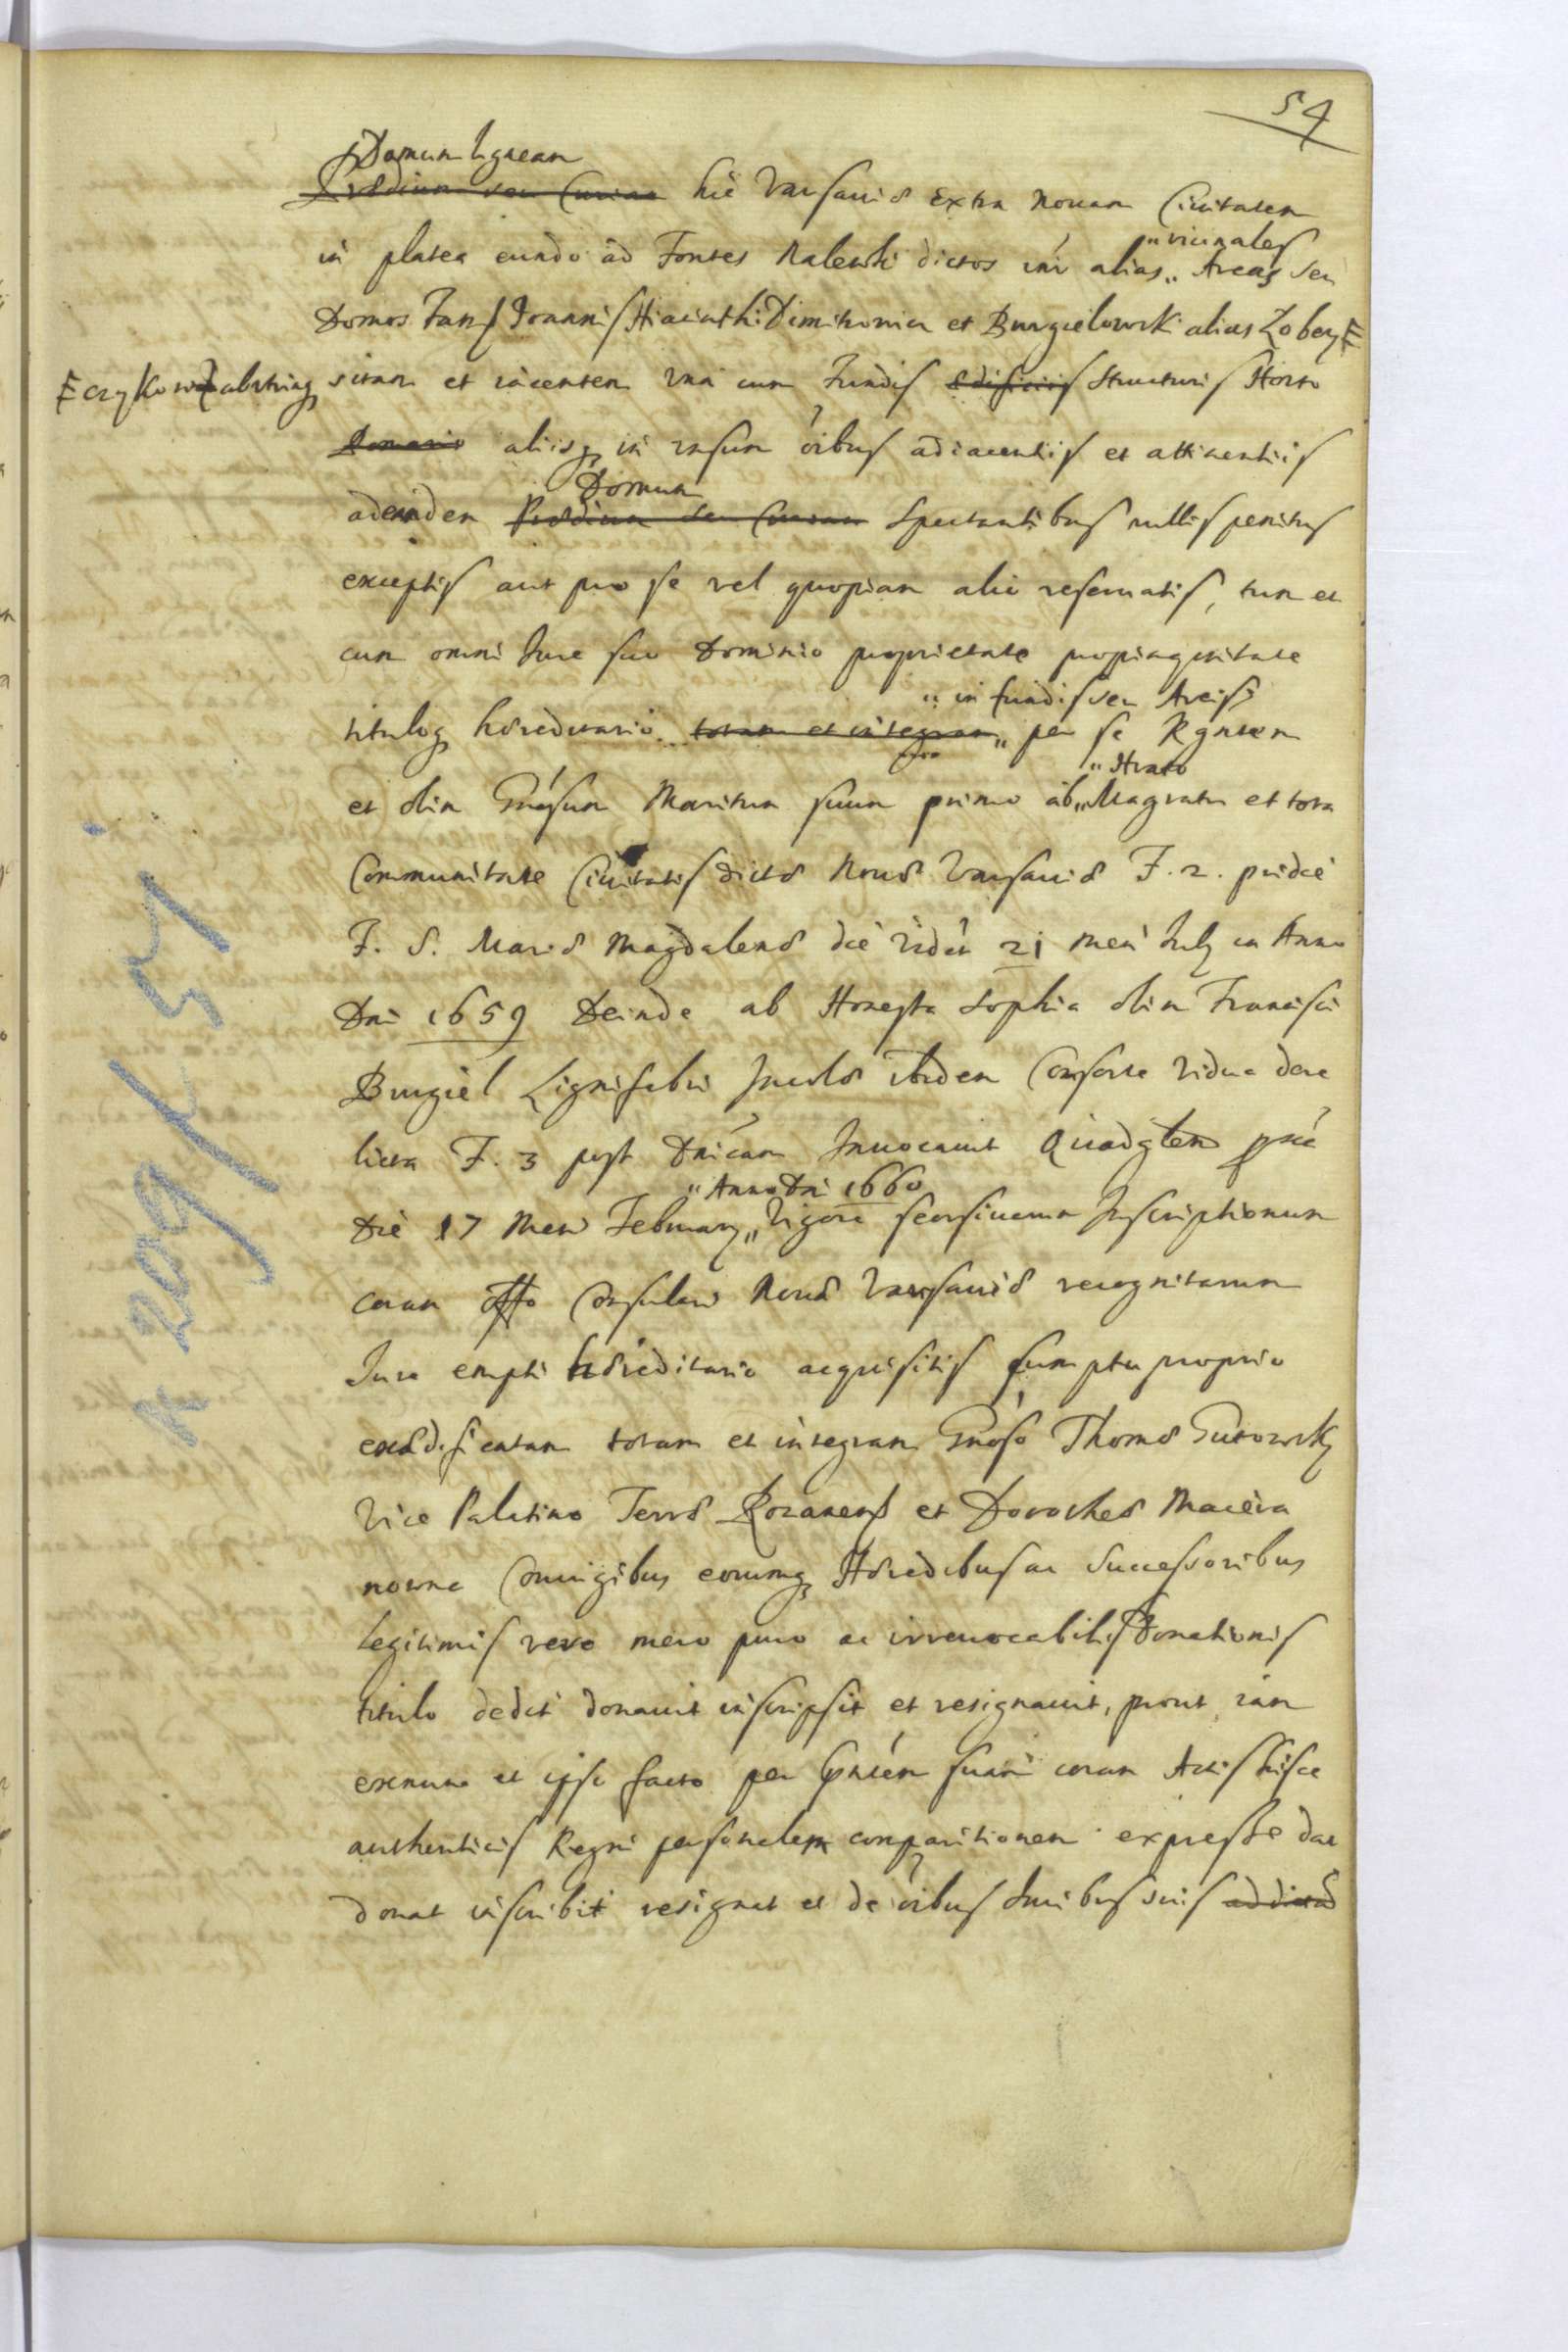 54
Domum ligneam
Prædium seu Curiam hic Varsauiæ extra Nouam Ciuitatem
in platea eundo ad Fontes Nalewki dictos int alias „ Areas seu
„ vicinales
Domos Joannis Hiacinthi Dimitrowicz et Burgielowski alias Zobey
czykow ab utrinq sitam et iacentem vna cum Fundis ædificiis Structuris Horto
aliisq in vnsum oibus adiacentiis et attinentiis
Domum
ad eandem Prædium seu Curiam Spectantibus nullis penitus
exceptis aut pro se vel quopiam alio reseruatis, tum et
cum omni Jure suo Dominio proprietate propinquitate
„ in fundis seu Areis
tituloq hæreditario totam et integram „ per se Rgntem
„ Hnrato
et olim Gnrosum Maritum suum primo ab „ Magratu et tota
Communitate Ciuitatis dictæ Nouæ Varsauiæ F. 2. pridie
F. S. Mariæ Magdalenæ die videt 21 men July in Anno
Dni 1659 Deinde ab Honesta Sophia olim Francisci
Burgiel Lignifabri Incolæ ibidem Consorte Vidua dere
licta F. 3 post Dnicam Inuocauit Quadglem pxie
„ Anno Dni 1660
Die 17 Men February „ Vigore seorsiuarum Inscriptionum
coram Offo Consulari Nouæ Varsauiæ recognitarum
Jure empti hæreditario acquisitis sumptu proprio
exædificatam totam et integram Gnoso Thomæ Gutowsky
Vice Palatino Terræ Rozanens et Dorotheæ Maciera
nowna Coniugibus eorumq Hæredibus ac Successoribus
Legitimis vero mero puro ac irreuocabilis Donationis
titulo dedit donauit inscripsit et resignauit, prout iam
exnunc et ipso facto per Gpntem suam coram Actis hisce
authenticis Regni personalem comparitionem expresse dat
donat inscribit resignat et de oibus Juribus suis ad dictas
K 209/K 54